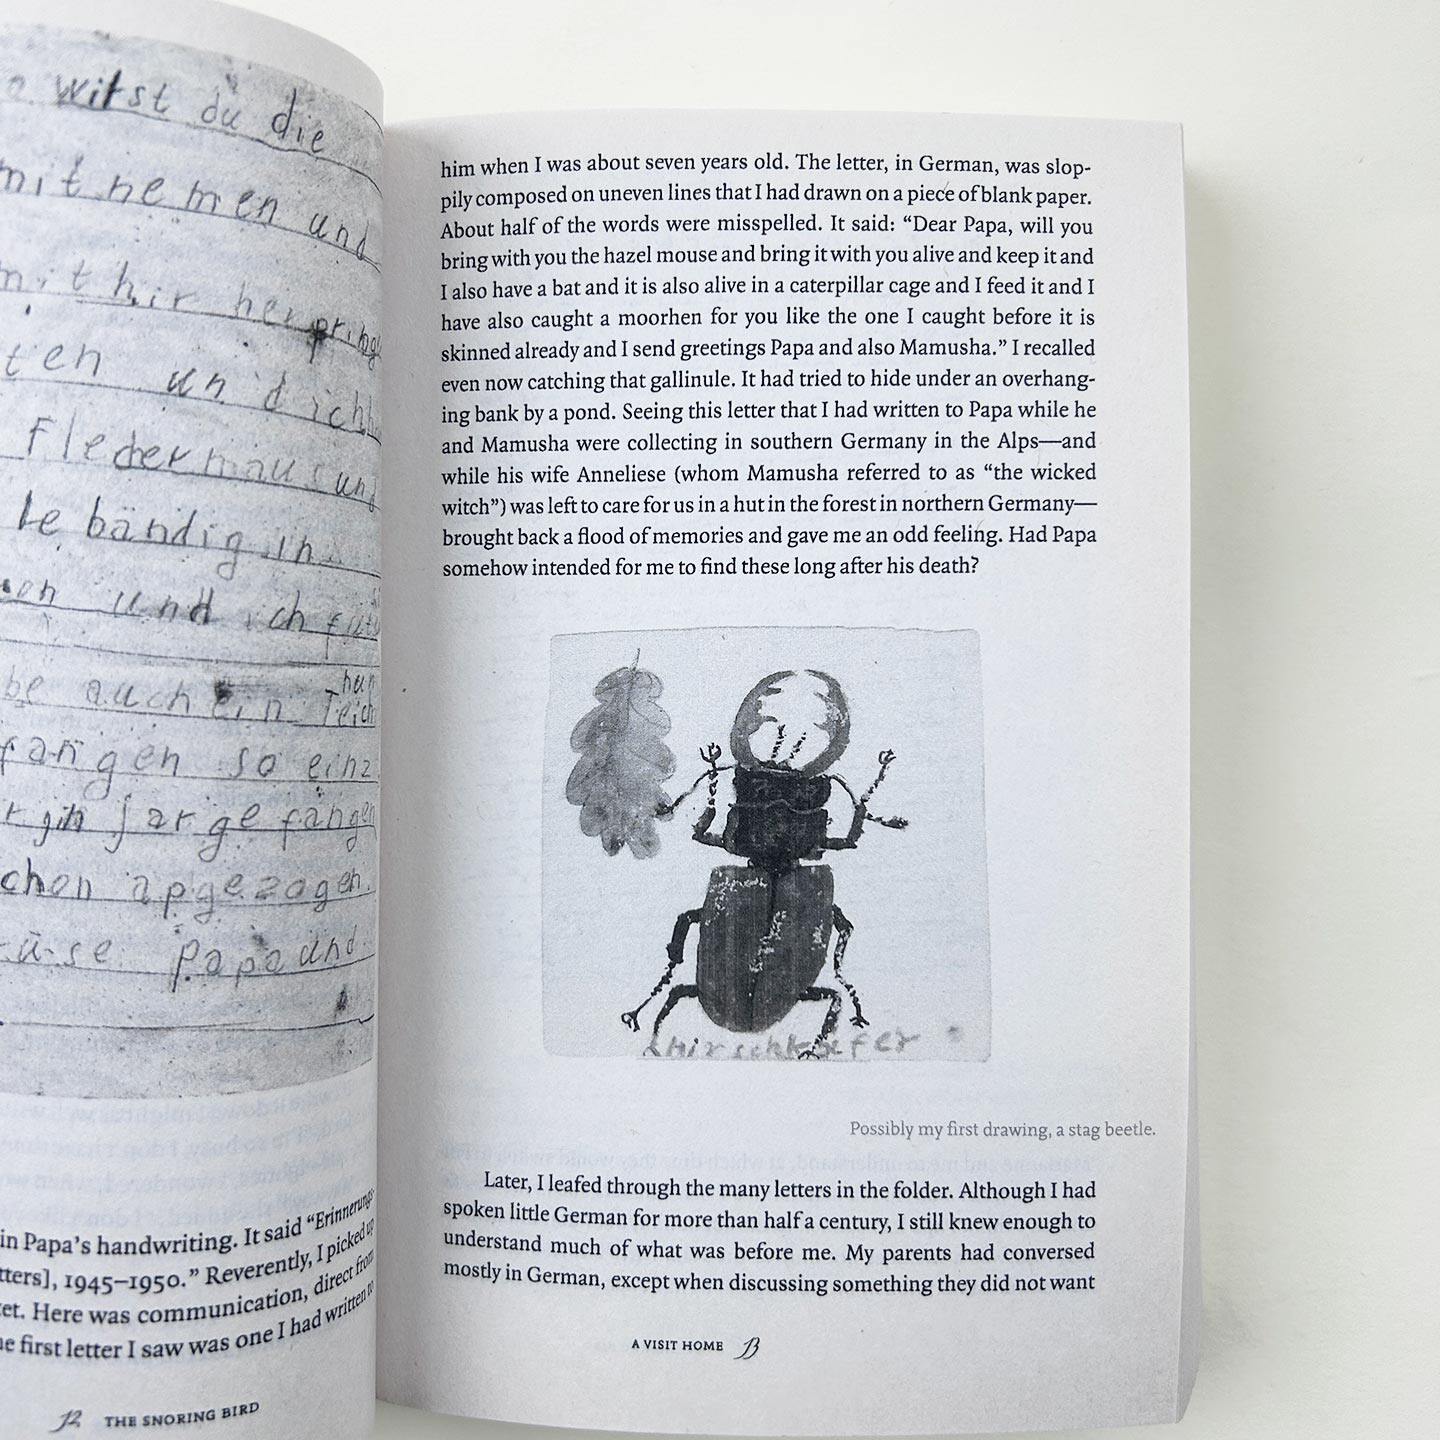 witst du die
mitnemen und
mithir her pring
ten un d ich
Fledermaus und
lebändig in
und ich
be auch ein Teich
hun
fangen so einz
jar gefangen
chen apgezogen.
Papa und
in Papa's handwriting. It said “Erinnerungs
tters], 1945–1950.” Reverently, I picked up
et. Here was communication, direct from
e first letter I saw was one I had written to
12 THE SNORING BIRD
him when I was about seven years old. The letter, in German, was slop-
pily composed on uneven lines that I had drawn on a piece of blank paper.
About half of the words were misspelled. It said: “Dear Papa, will you
bring with you the hazel mouse and bring it with you alive and keep it and
I also have a bat and it is also alive in a caterpillar cage and I feed it and I
have also caught a moorhen for you like the one I caught before it is
skinned already and I send greetings Papa and also Mamusha.” I recalled
even now catching that gallinule. It had tried to hide under an overhang-
ing bank by a pond. Seeing this letter that I had written to Papa while he
and Mamusha were collecting in southern Germany in the Alps—and
while his wife Anneliese (whom Mamusha referred to as “the wicked
witch”) was left to care for us in a hut in the forest in northern Germany—
brought back a flood of memories and gave me an odd feeling. Had Papa
somehow intended for me to find these long after his death?
Hirschkäfer
Possibly my first drawing, a stag beetle.
Later, I leafed through the many letters in the folder. Although I had
spoken little German for more than half a century, I still knew enough to
understand much of what was before me. My parents had conversed
mostly in German, except when discussing something they did not want
A VISIT HOME 13